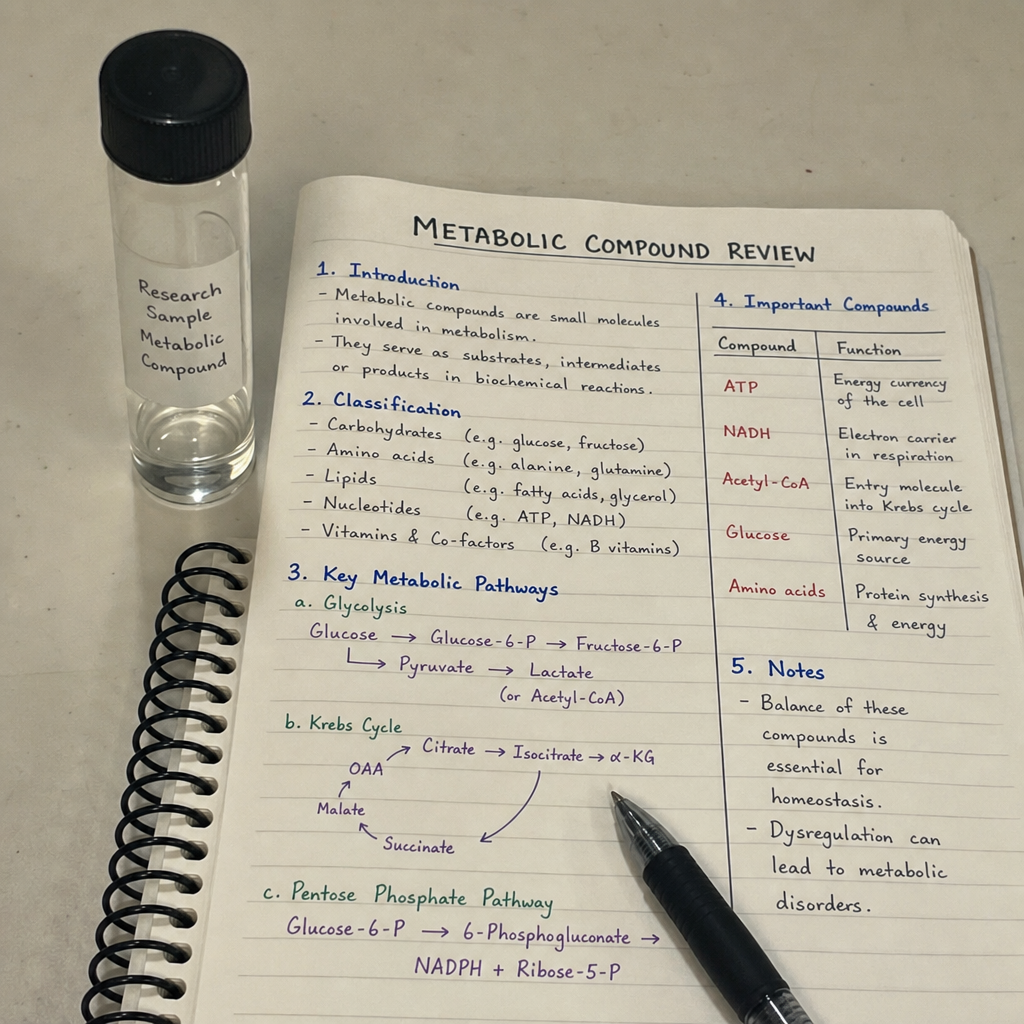 Research
Sample
Metabolic
Compound
METABOLIC COMPOUND REVIEW
1. Introduction
- Metabolic compounds are small molecules
involved in metabolism.
- They serve as substrates, intermediates
or products in biochemical reactions.
2. Classification
- Carbohydrates (e.g. glucose, fructose)
- Amino acids (e.g. alanine, glutamine)
- Lipids (e.g. fatty acids, glycerol)
- Nucleotides (e.g. ATP, NADH)
- Vitamins & Co-factors (e.g. B vitamins)
3. Key Metabolic Pathways
a. Glycolysis
Glucose → Glucose-6-P → Fructose-6-P
→ Pyruvate → Lactate
(or Acetyl-CoA)
b. Krebs Cycle
Citrate → Isocitrate → α-KG
OAA
Malate
Succinate
c. Pentose Phosphate Pathway
Glucose-6-P → 6-Phosphogluconate →
NADPH + Ribose-5-P
4. Important Compounds
Compound Function
ATP Energy currency
of the cell
NADH Electron carrier
in respiration
Acetyl-CoA Entry molecule
into Krebs cycle
Glucose Primary energy
source
Amino acids Protein synthesis
& energy
5. Notes
- Balance of these
compounds is
essential for
homeostasis.
- Dysregulation can
lead to metabolic
disorders.